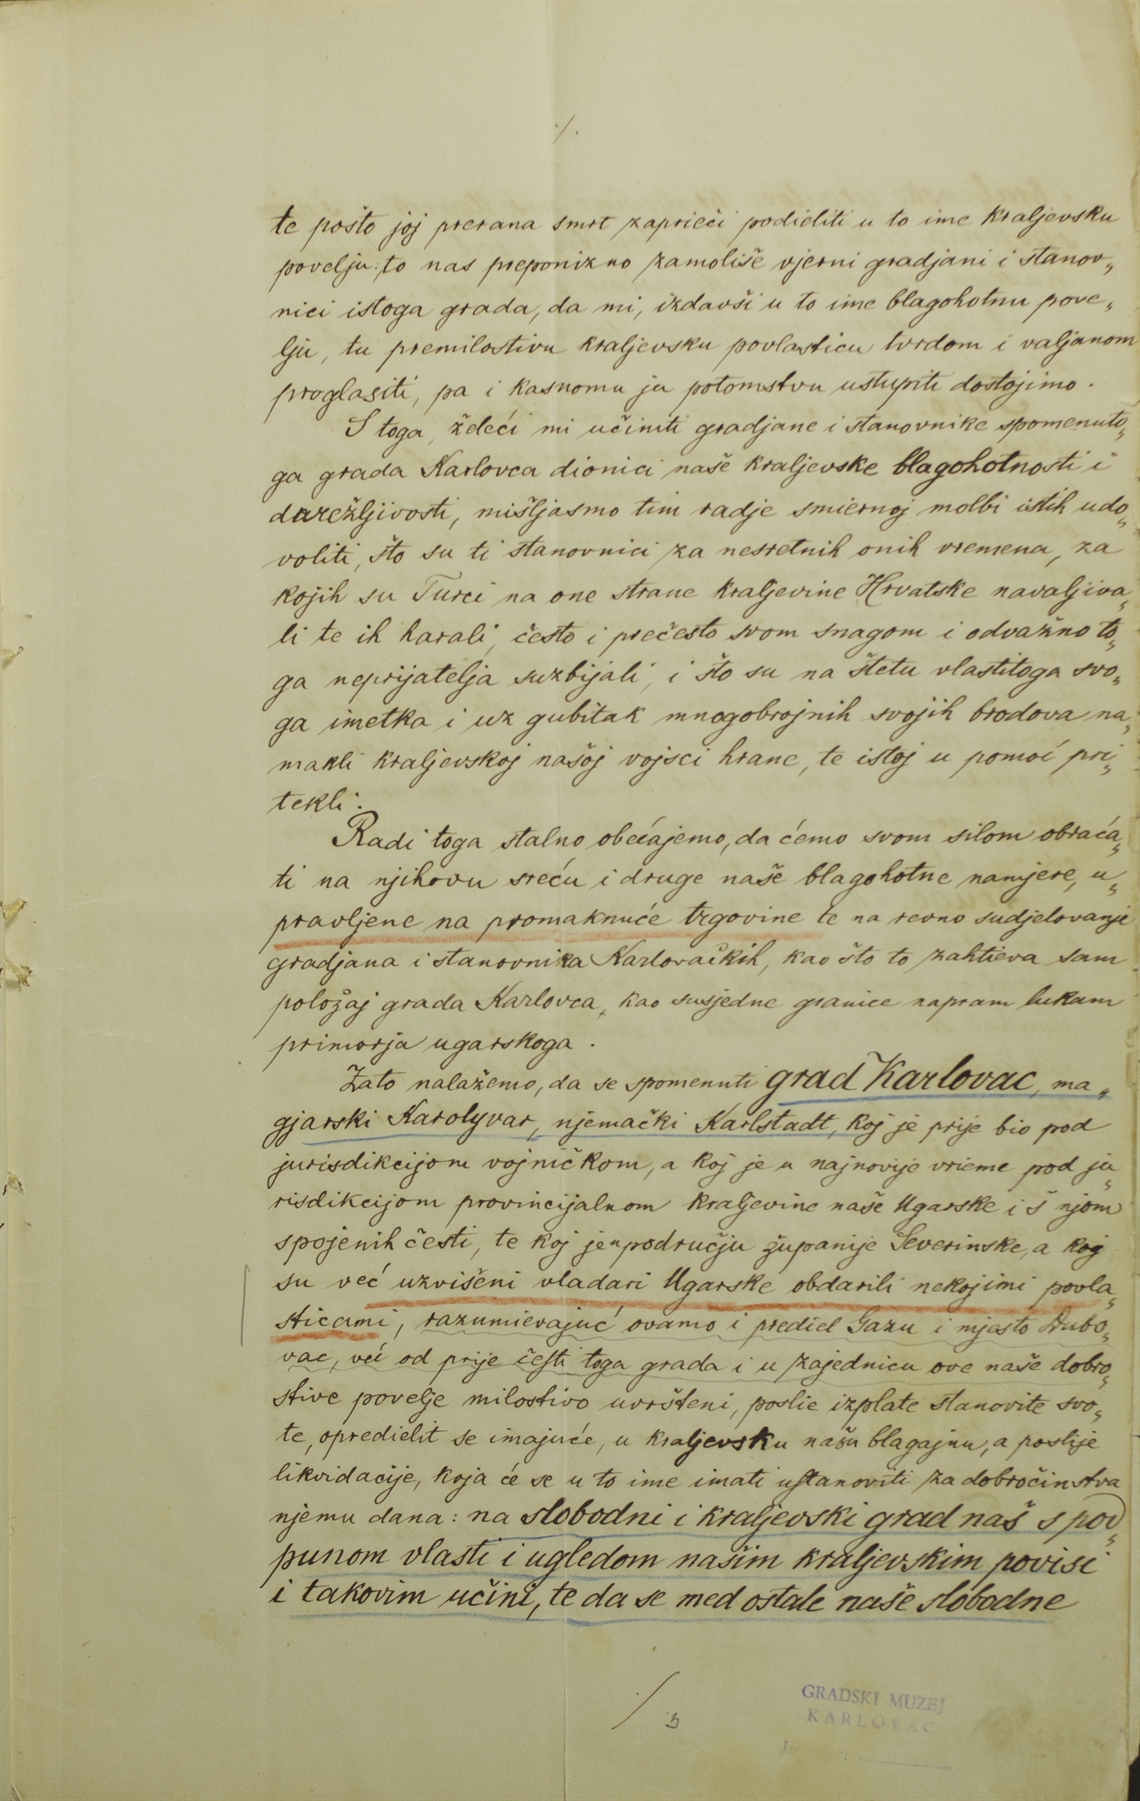 ./.
te pošto joj prerana smrt zaprieči podieliti u to ime kraljevsku
povelju: to nas preponizno zamoliše vjerni gradjani i stanov„
nici istoga grada, da mi, izdavši u to ime blagohotnu pove„
lju, tu premilostivu kraljevsku povlasticu tvrdom i valjanom
proglasiti, pa i kasnomu ju potomstvu ustupiti dostojimo.
S toga, želeći mi učiniti gradjane i stanovnike spomenuto„
ga grada Karlovca dionici naše kraljevske blagohotnosti i
darežljivosti, mišljasmo tim radje smiernoj molbi istih udo„
voliti, što su ti stanovnici za nesretnih onih vremena, za
kojih su Turci na one strane kraljevine Hrvatske navaljiva„
li te ih harali, često i prečesto svom snagom i odvažno to„
ga neprijatelja suzbijali, i što su na štetu vlastitoga svo„
ga imetka i uz gubitak mnogobrojnih svojih brodova na„
makli kraljevskoj našoj vojsci hrane, te istoj u pomoć pri„
tekli.
Radi toga stalno obećajemo, da ćemo svom silom obraća„
ti na njihovu sreću i druge naše blagohotne namjere, u„
pravljene na promaknuće trgovine te na revno sudjelovanje
gradjana i stanovnika Karlovačkih, kao što to zahtieva sam
položaj grada Karlovca, kao susjedne granice napram lukam
primorja ugarskoga.
Zato nalažemo, da se spomenuti grad Karlovac, ma„
gjarski Karolyvar, njemački Karlstadt, koj je prije bio pod
jurisdikcijom vojničkom, a koj je u najnovije vrieme pod ju„
risdikcijom provincijalnom kraljevine naše Ugarske i š njom
spojenih česti, te koj je u području županije Severinske, a koj
su već uzvišeni vladari Ugarske obdarili nekojimi povla„
sticami, razumievajuć ovamo i prediel Gazu i mjesto Dubo„
vac, već od prije česti toga grada i u zajednicu ove naše dobro„
stive povelje milostivo uvršteni, poslie izplate stanovite svo„
te, opredielit se imajuće, u kraljevsku našu blagajnu, a poslije
likvidacije, koja će se u to ime imati ustanoviti za dobročinstva
njemu dana: na slobodni i kraljevski grad naš s pot„
punom vlasti i ugledom našim kraljevskim povisi
i takovim učini, te da se med ostale naše slobodne
/3
GRADSKI MUZEJ
KARLOVAC